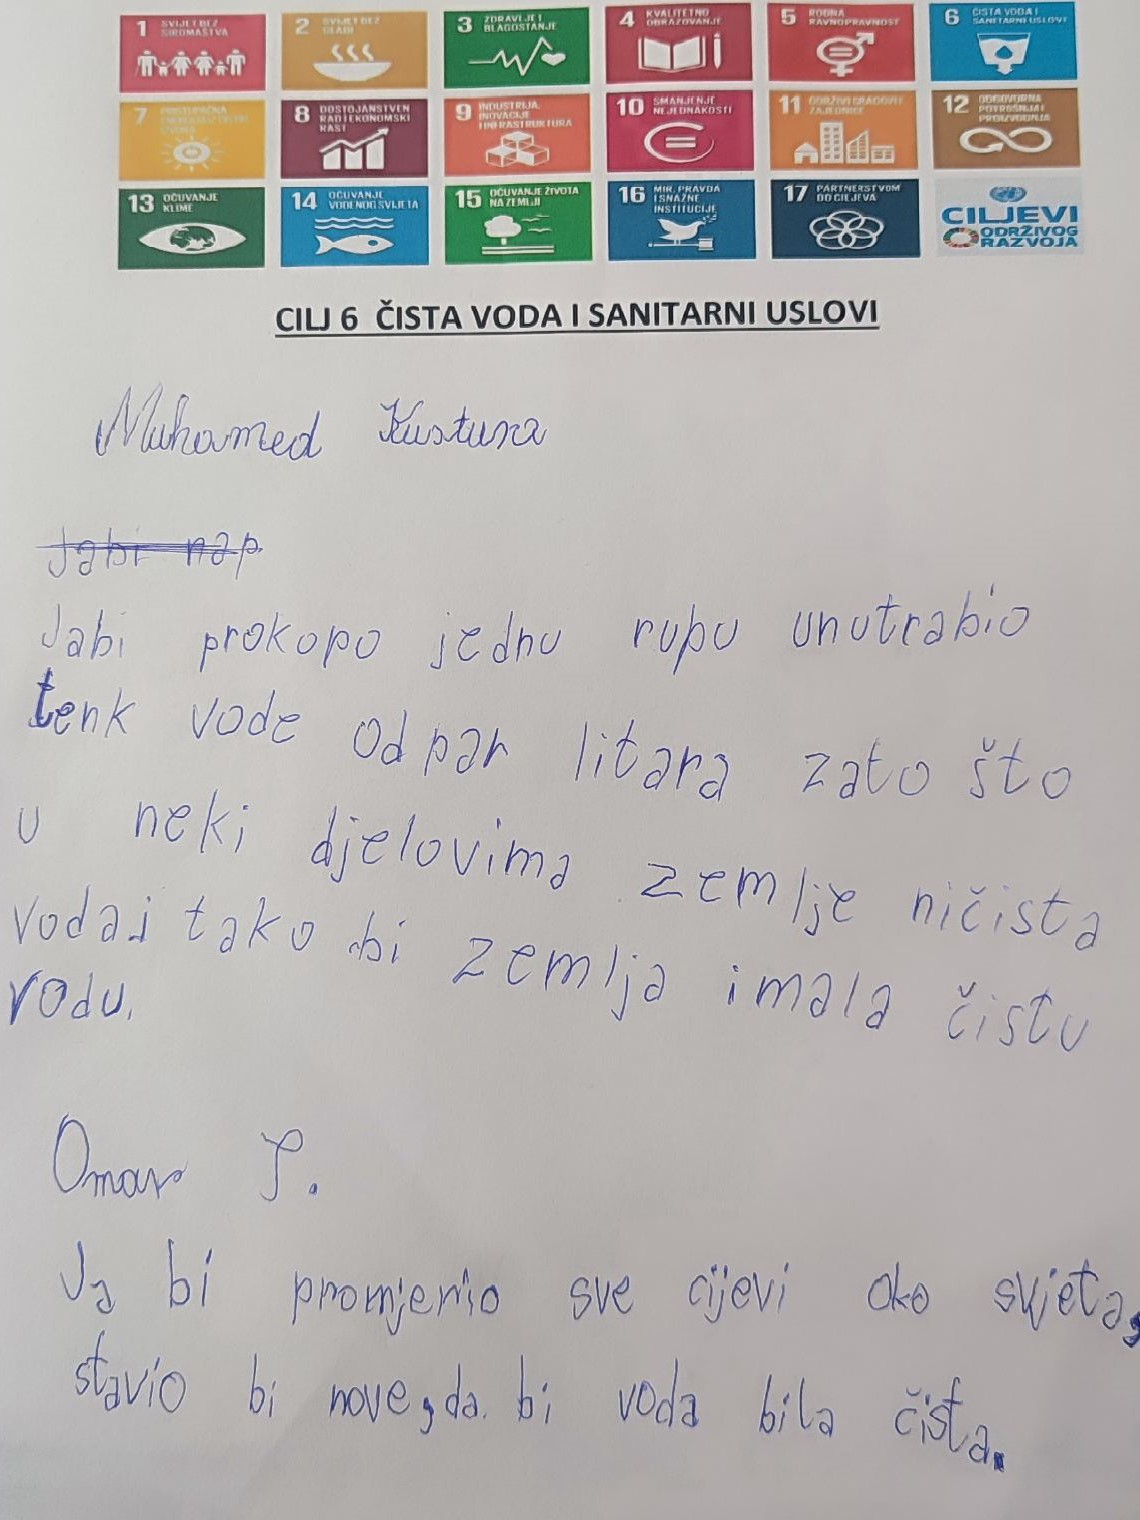 1 SVIJET BEZ SIROMAŠTVA
2 SVIJET BEZ GLADI
3 ZDRAVLJE I BLAGOSTANJE
4 KVALITETNO OBRAZOVANJE
5 RODNA RAVNOPRAVNOST
6 ČISTA VODA I SANITARNI USLOVI
7 PRISTUPAČNA
8 DOSTOJANSTVEN RAD I EKONOMSKI RAST
9 INDUSTRIJA, INOVACIJE I INFRASTRUKTURA
10 SMANJENJE NEJEDNAKOSTI
11 ODRŽIVI GRADOVI I ZAJEDNICE
12 ODGOVORNA POTROŠNJA I PROIZVODNJA
13 OČUVANJE KLIME
14 OČUVANJE VODENOG SVIJETA
15 OČUVANJE ŽIVOTA NA ZEMLJI
16 MIR, PRAVDA I SNAŽNE INSTITUCIJE
17 PARTNERSTVOM DO CILJEVA
CILJEVI
ODRŽIVOG
RAZVOJA
CILJ 6 ČISTA VODA I SANITARNI USLOVI
Muhamed Kustura
Jabi nap.
Jabi prokopo jednu rupu unutrabio
tenk vode od par litara zato što
u neki djelovima zemlje ničista
voda i tako bi zemlja imala čistu
vodu.
Omar
Ja bi promjenio sve cijevi oko svjeta,
stavio bi nove, da bi voda bila čista.